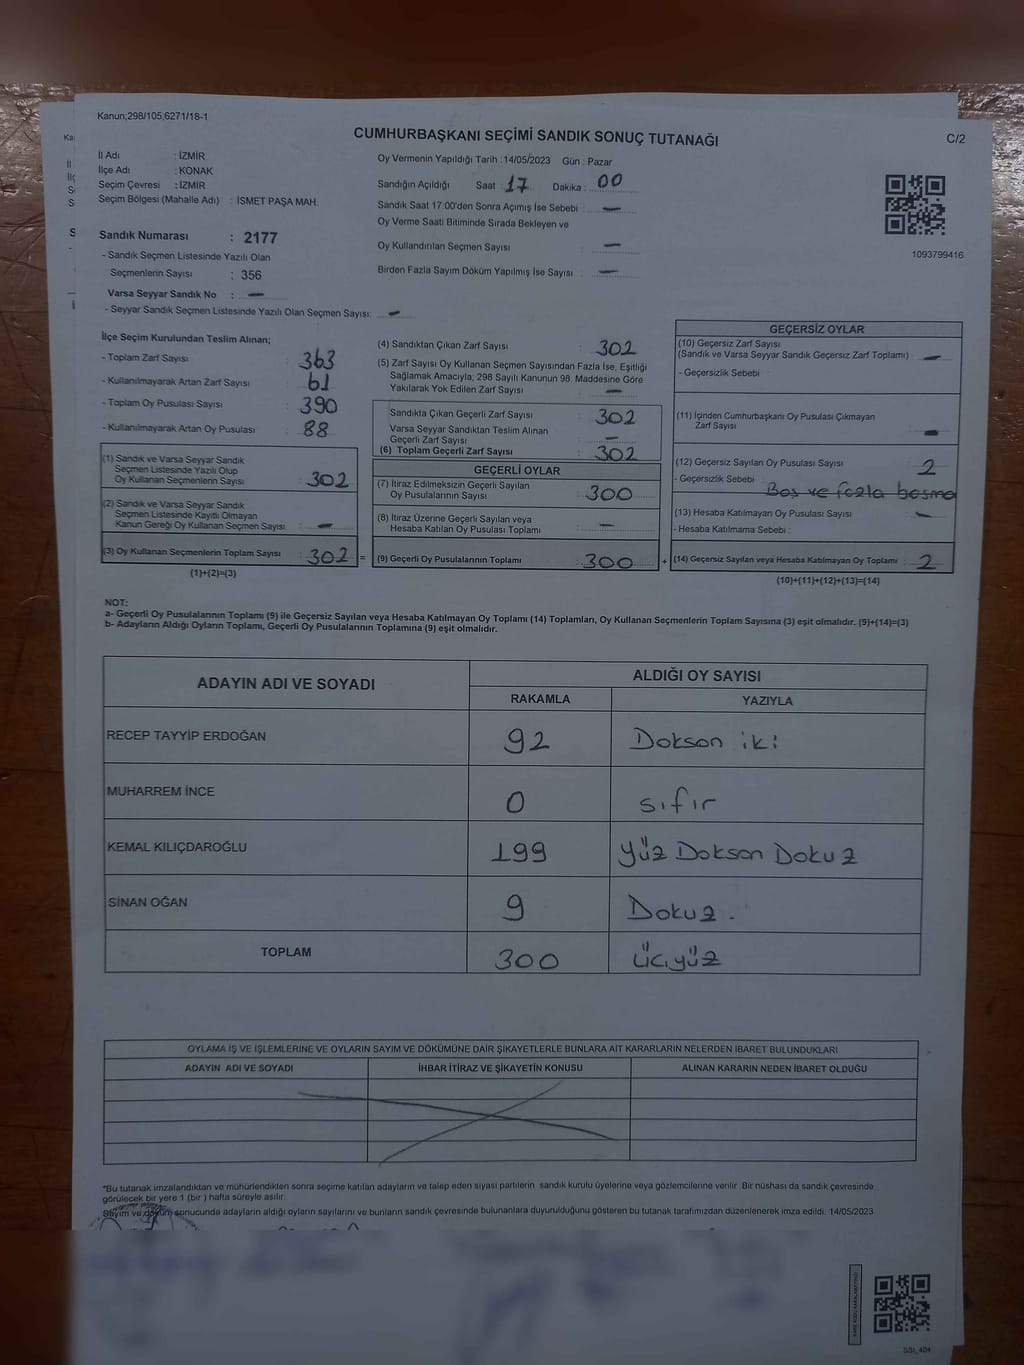 Kanun;298/105;6271/18-1
CUMHURBAŞKANI SEÇİMİ SANDIK SONUÇ TUTANAĞI
C/2
İl Adı : İZMİR
İlçe Adı : KONAK
Seçim Çevresi : İZMİR
Seçim Bölgesi (Mahalle Adı) : İSMET PAŞA MAH.
Sandık Numarası : 2177
- Sandık Seçmen Listesinde Yazılı Olan
Seçmenlerin Sayısı : 356
Varsa Seyyar Sandık No : -
- Seyyar Sandık Seçmen Listesinde Yazılı Olan Seçmen Sayısı: -
Oy Vermenin Yapıldığı Tarih : 14/05/2023 Gün : Pazar
Sandığın Açıldığı Saat : 17 Dakika : 00
Sandık Saat 17:00'den Sonra Açımış İse Sebebi : -
Oy Verme Saati Bitiminde Sırada Bekleyen ve
Oy Kullandırılan Seçmen Sayısı : -
Birden Fazla Sayım Döküm Yapılmış İse Sayısı : -
1093799416
İlçe Seçim Kurulundan Teslim Alınan;
- Toplam Zarf Sayısı : 363
- Kullanılmayarak Artan Zarf Sayısı : 61
- Toplam Oy Pusulası Sayısı : 390
- Kullanılmayarak Artan Oy Pusulası : 88
(1) Sandık ve Varsa Seyyar Sandık
Seçmen Listesinde Yazılı Olup
Oy Kullanan Seçmenlerin Sayısı : 302
(2) Sandık ve Varsa Seyyar Sandık
Seçmen Listesinde Kayıtlı Olmayan
Kanun Gereği Oy Kullanan Seçmen Sayısı : -
(3) Oy Kullanan Seçmenlerin Toplam Sayısı : 302 =
(1)+(2)=(3)
(4) Sandıktan Çıkan Zarf Sayısı : 302
(5) Zarf Sayısı Oy Kullanan Seçmen Sayısından Fazla İse, Eşitliği
Sağlamak Amacıyla; 298 Sayılı Kanunun 98. Maddesine Göre
Yakılarak Yok Edilen Zarf Sayısı : -
Sandıkta Çıkan Geçerli Zarf Sayısı : 302
Varsa Seyyar Sandıktan Teslim Alınan
Geçerli Zarf Sayısı : -
(6) Toplam Geçerli Zarf Sayısı : 302
GEÇERLİ OYLAR
(7) İtiraz Edilmeksizin Geçerli Sayılan
Oy Pusulalarının Sayısı : 300
(8) İtiraz Üzerine Geçerli Sayılan veya
Hesaba Katılan Oy Pusulası Toplamı : -
(9) Geçerli Oy Pusulalarının Toplamı : 300 +
GEÇERSİZ OYLAR
(10) Geçersiz Zarf Sayısı
(Sandık ve Varsa Seyyar Sandık Geçersiz Zarf Toplamı) : -
- Geçersizlik Sebebi :
(11) İçinden Cumhurbaşkanı Oy Pusulası Çıkmayan
Zarf Sayısı : -
(12) Geçersiz Sayılan Oy Pusulası Sayısı : 2
- Geçersizlik Sebebi : Boş ve fazla basma
(13) Hesaba Katılmayan Oy Pusulası Sayısı : -
- Hesaba Katılmama Sebebi :
(14) Geçersiz Sayılan veya Hesaba Katılmayan Oy Toplamı : 2
(10)+(11)+(12)+(13)=(14)
NOT:
a- Geçerli Oy Pusulalarının Toplamı (9) ile Geçersiz Sayılan veya Hesaba Katılmayan Oy Toplamı (14) Toplamları, Oy Kullanan Seçmenlerin Toplam Sayısına (3) eşit olmalıdır. (9)+(14)=(3)
b- Adayların Aldığı Oyların Toplamı, Geçerli Oy Pusulalarının Toplamına (9) eşit olmalıdır.
ADAYIN ADI VE SOYADI
ALDIĞI OY SAYISI
RAKAMLA YAZIYLA
RECEP TAYYİP ERDOĞAN 92 Dokson iki
MUHARREM İNCE 0 sıfır
KEMAL KILIÇDAROĞLU 199 yüz Dokson Dokuz
SİNAN OĞAN 9 Dokuz.
TOPLAM 300 üçyüz
OYLAMA İŞ VE İŞLEMLERİNE VE OYLARIN SAYIM VE DÖKÜMÜNE DAİR ŞİKAYETLERLE BUNLARA AİT KARARLARIN NELERDEN İBARET BULUNDUKLARI
ADAYIN ADI VE SOYADI İHBAR İTİRAZ VE ŞİKAYETİN KONUSU ALINAN KARARIN NEDEN İBARET OLDUĞU
*Bu tutanak imzalandıktan ve mühürlendikten sonra seçime katılan adayların ve talep eden siyasi partilerin sandık kurulu üyelerine veya gözlemcilerine verilir. Bir nüshası da sandık çevresinde
görülecek bir yere 1 (bir) hafta süreyle asılır.
Sayım ve döküm sonucunda adayların aldığı oyların sayılarını ve bunların sandık çevresinde bulunanlara duyurulduğunu gösteren bu tutanak tarafımızdan düzenlenerek imza edildi. 14/05/2023